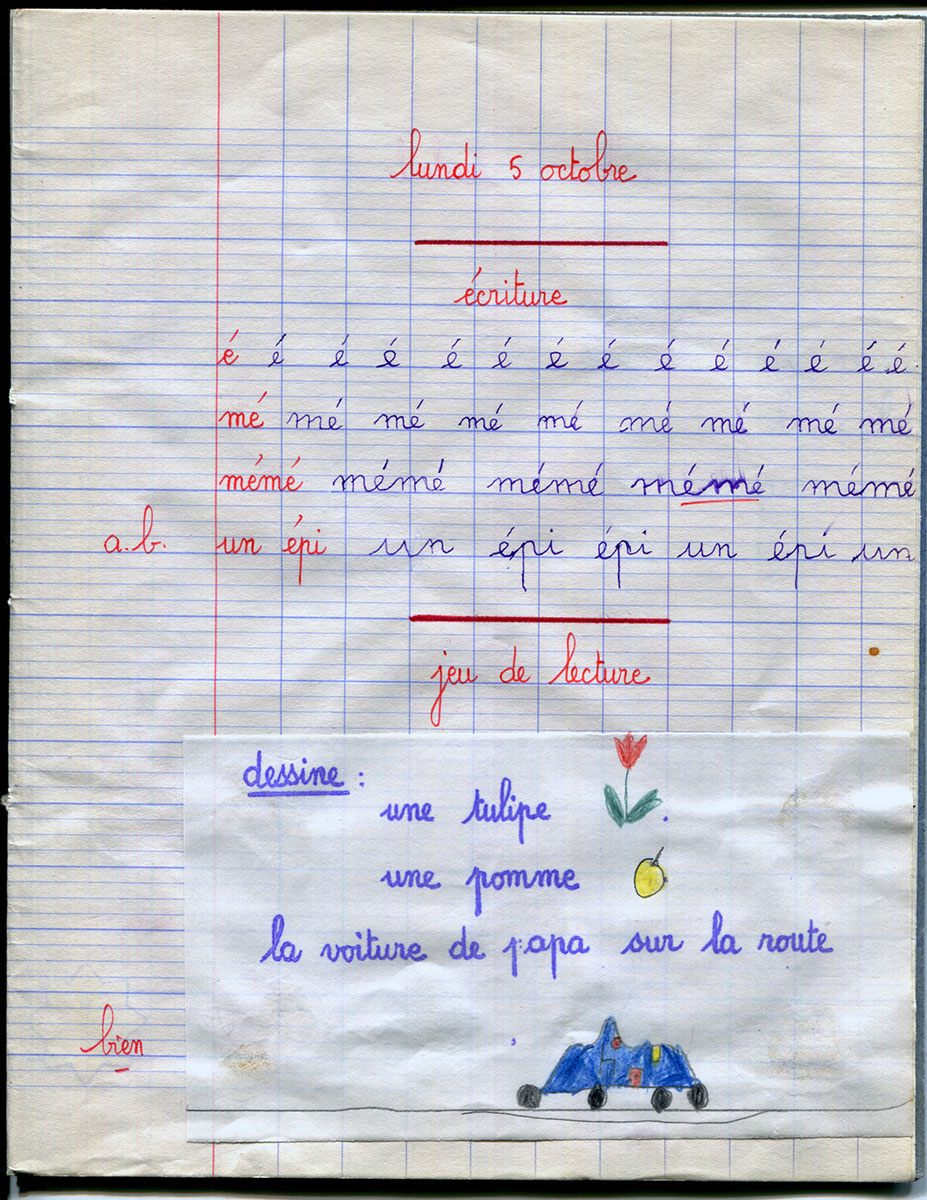 lundi 5 octobre
écriture
é é é é é é é é é é é é é é
mé mé mé mé mé mé mé mé mé
mémé mémé mémé mémé mémé
a.b. un épi un épi épi un épi un
jeu de lecture
dessine :
une tulipe .
une pomme
la voiture de papa sur la route
bien